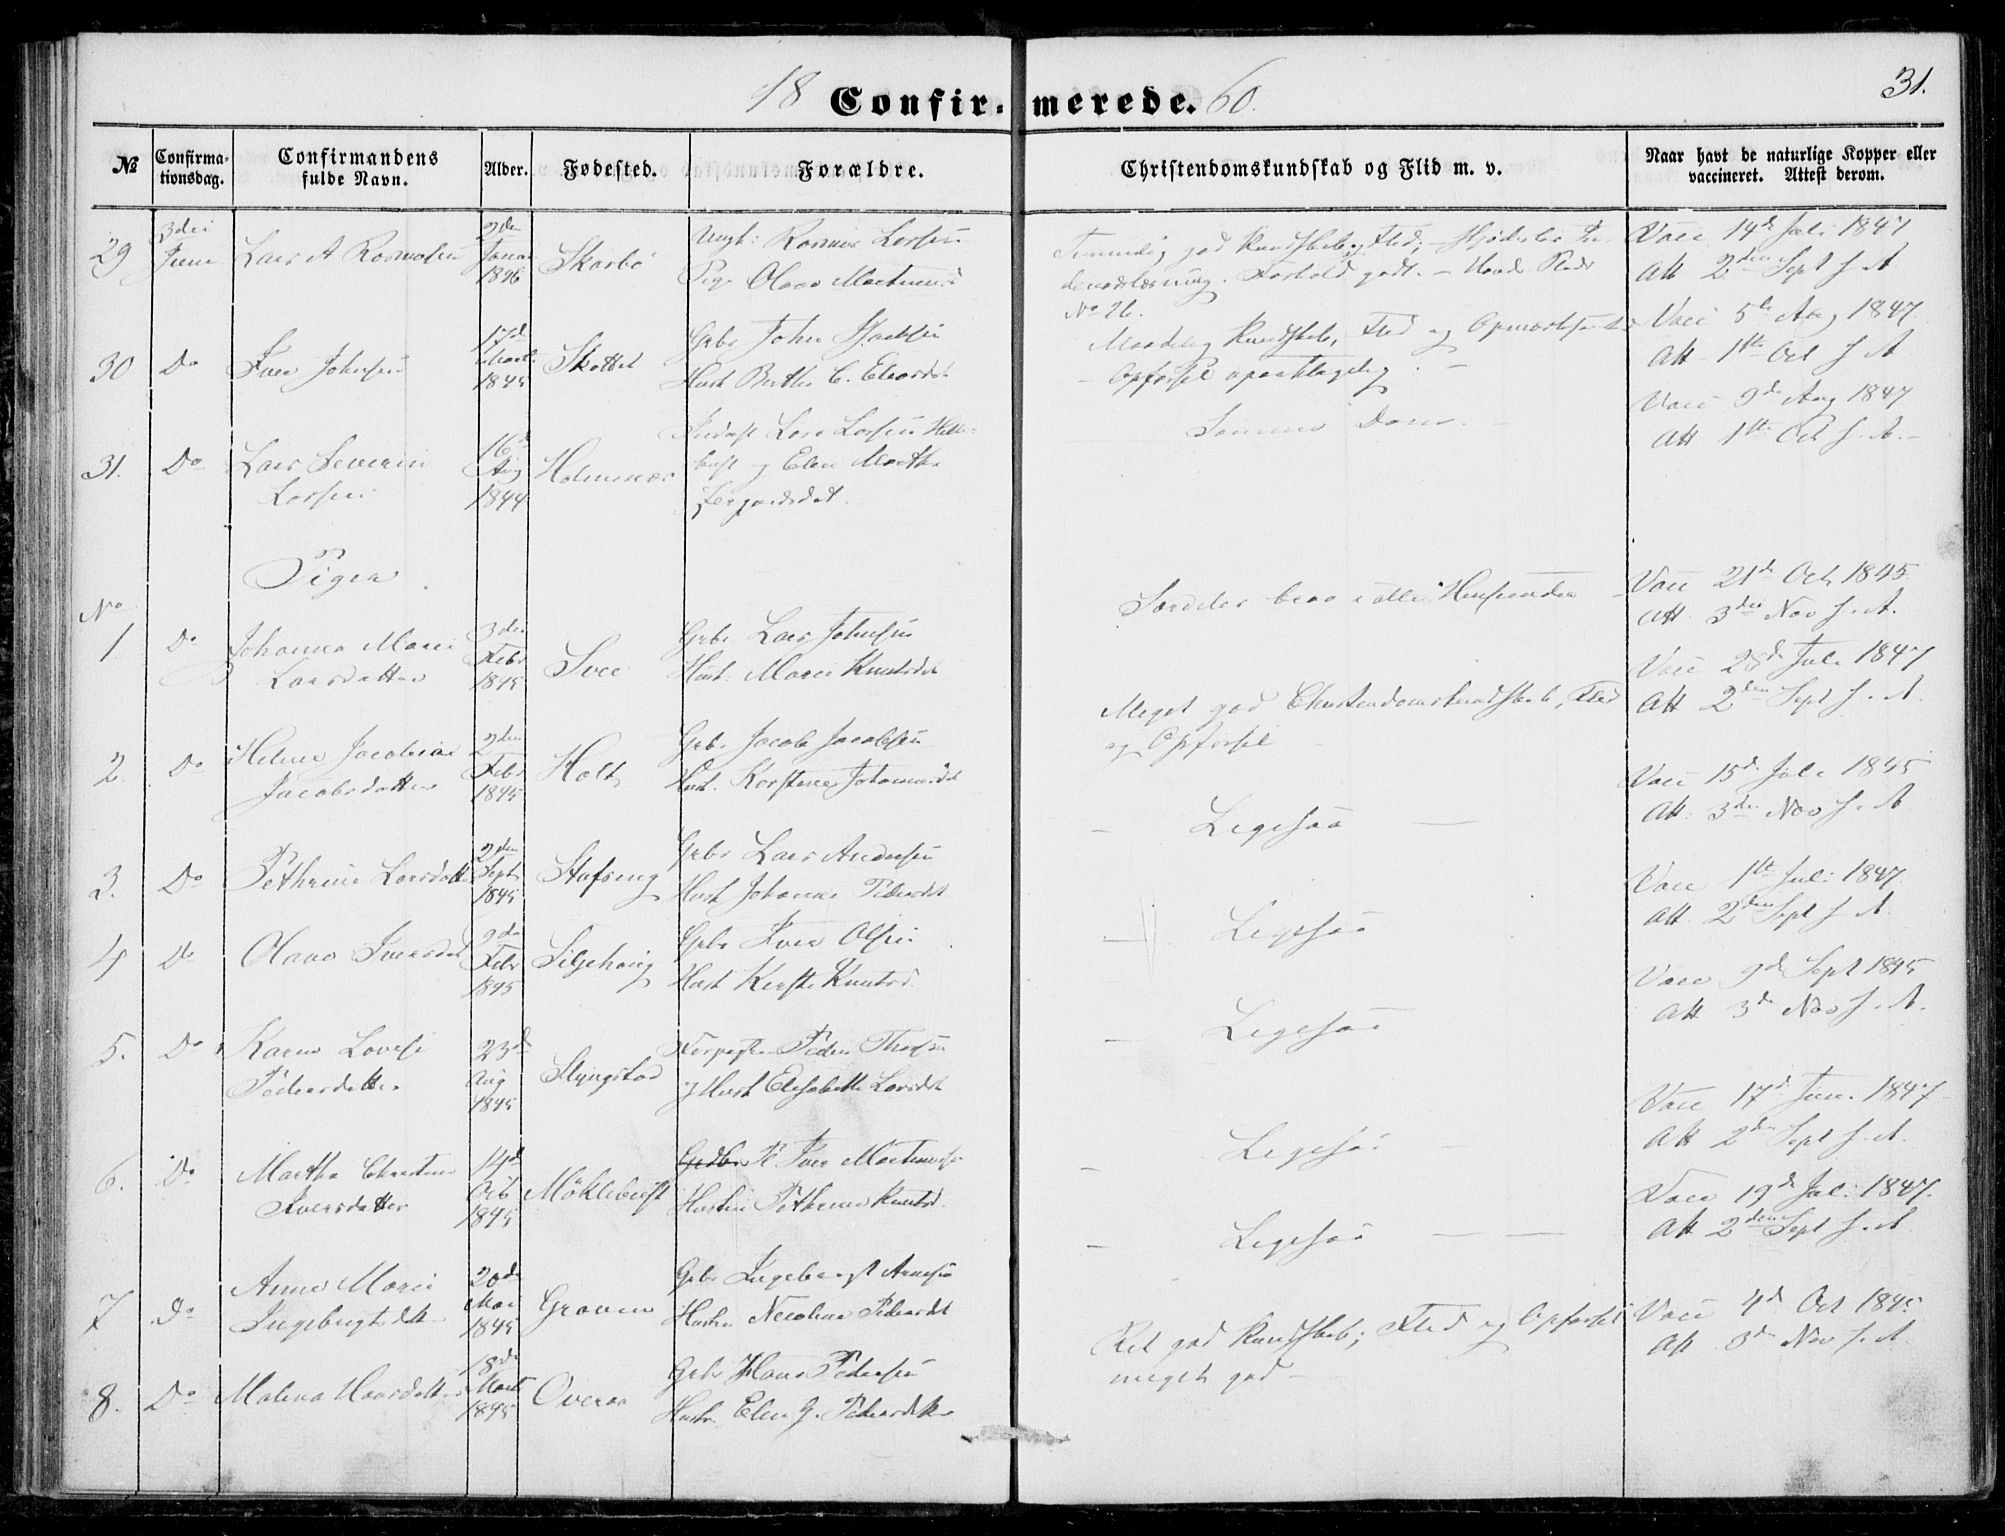 18 Confir- merede. 60.
31.
№
Confirma-
tionsdag.
Confirmandens
fulde Navn.
Alder.
Fødested.
Forældre.
Christendomskundskab og Flid m. v.
Naar havt de naturlige Kopper eller
vaccineret. Attest derom.
29
3die
Juni
Lars A
2den
1846
Skarbö
Ungk:
Pige Olava
god Kundskab og Flid.
Forhold godt. –
No 26.
Vacc 14d Juli 1847
Att 2den Sept s. A
30
Do
Iver Johnsen
17d
1845
Skottet
Grbr John
Hust Berthe
Kundskab, Flid og
Opførsel upaaklagelig. –
Vacc 5te Aug 1847
Att 1ste Oct s A
31.
Do
Lars Severin
Larsen
16d
Aug
1844
Holmenæs
Lars Larsen
og Elen Marthe
Samme Dom. –
Vacc 9de Aug 1847
Att 1ste Oct s. A. –
Piger
No
1
Do
Johanna Marie
Larsdatter
3die
Febr
1845
Svee
Grbr Lars Johnsen
Hust: Marie Knutsdt
Særdeles brav i alle Henseender –
Vacc 21de Oct 1845
Att. 3den Nov s. A.
2.
Do
Jacobsdatter
2den
Febr
1845
Holt
Grbr Jacob Jacobsen
Hust.
Meget god Christendomskundskab, Flid
og Opførsel
Vacc 28de Juli 1847
Att 2den Sept s. A
3.
Do
Pethrine Larsdatter
2den
Sept
1845
Stafseng
Grbr Lars Andersen
Hust Johanne Pedersdt
– Ligesaa –
Vacc 15de Juli 1845
Att: 3den Nov s. A
4
Do
Olave Iversdt
9de
Febr
1845
Grbr Iver Olsen
Hust Kirsti Knutsd.
– Ligesaa
Vacc 1ste Juli 1847
Att 2den Sept s. A.
5.
Do
Karen Lovise
Pedersdatter
23d
Aug
1845
Slyngstad
Peder
og Hust Elisabeth Larsdt
– Ligesaa
Vacc 9de Sept 1845
Att 3de Nov s. A.
6.
Do
Martha
Iversdatter
14d
Oct
1845
Möklebust
Iver
Hustru Pethrine Knutsd.
– Ligesaa –
Vacc 17d Juni 1847
Att 2den Sept s. A.
7
Do
Anne Marie
Ingebrigtsdt
20de
Mai
1845
Graven
Grbr Ingebrigt Arnesen
Hustr Nicoline Pedersdt
– Ligesaa – –
Vacc 19de Juli 1847.
Att 2den Sept s. A
8.
Do
Malena Hansdatter
18de
Marts
1845
Overaa
Grbr Hans Pedersen
Hustr. Elen G. Pedersdtr
Ret god Kundskab; Flid og Opførsel
meget god –
Vacc 4d Oct 1845
Att 3de Nov s. A.